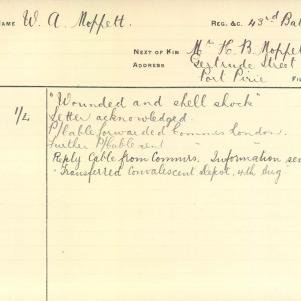 NAME W. A. Moffett. REG. &C. 43rd Bat
NEXT OF KIN Mr H. B. Moffet
ADDRESS Gertrude Street
Port Pirie
1/L "Wounded and shell shock"
Letter acknowledged.
P/bable forwarded Commrs London.
Further P/bable sent " "
Reply Cable from Commrs. Information
"Transferred Convalescent Depot, 4th Aug"